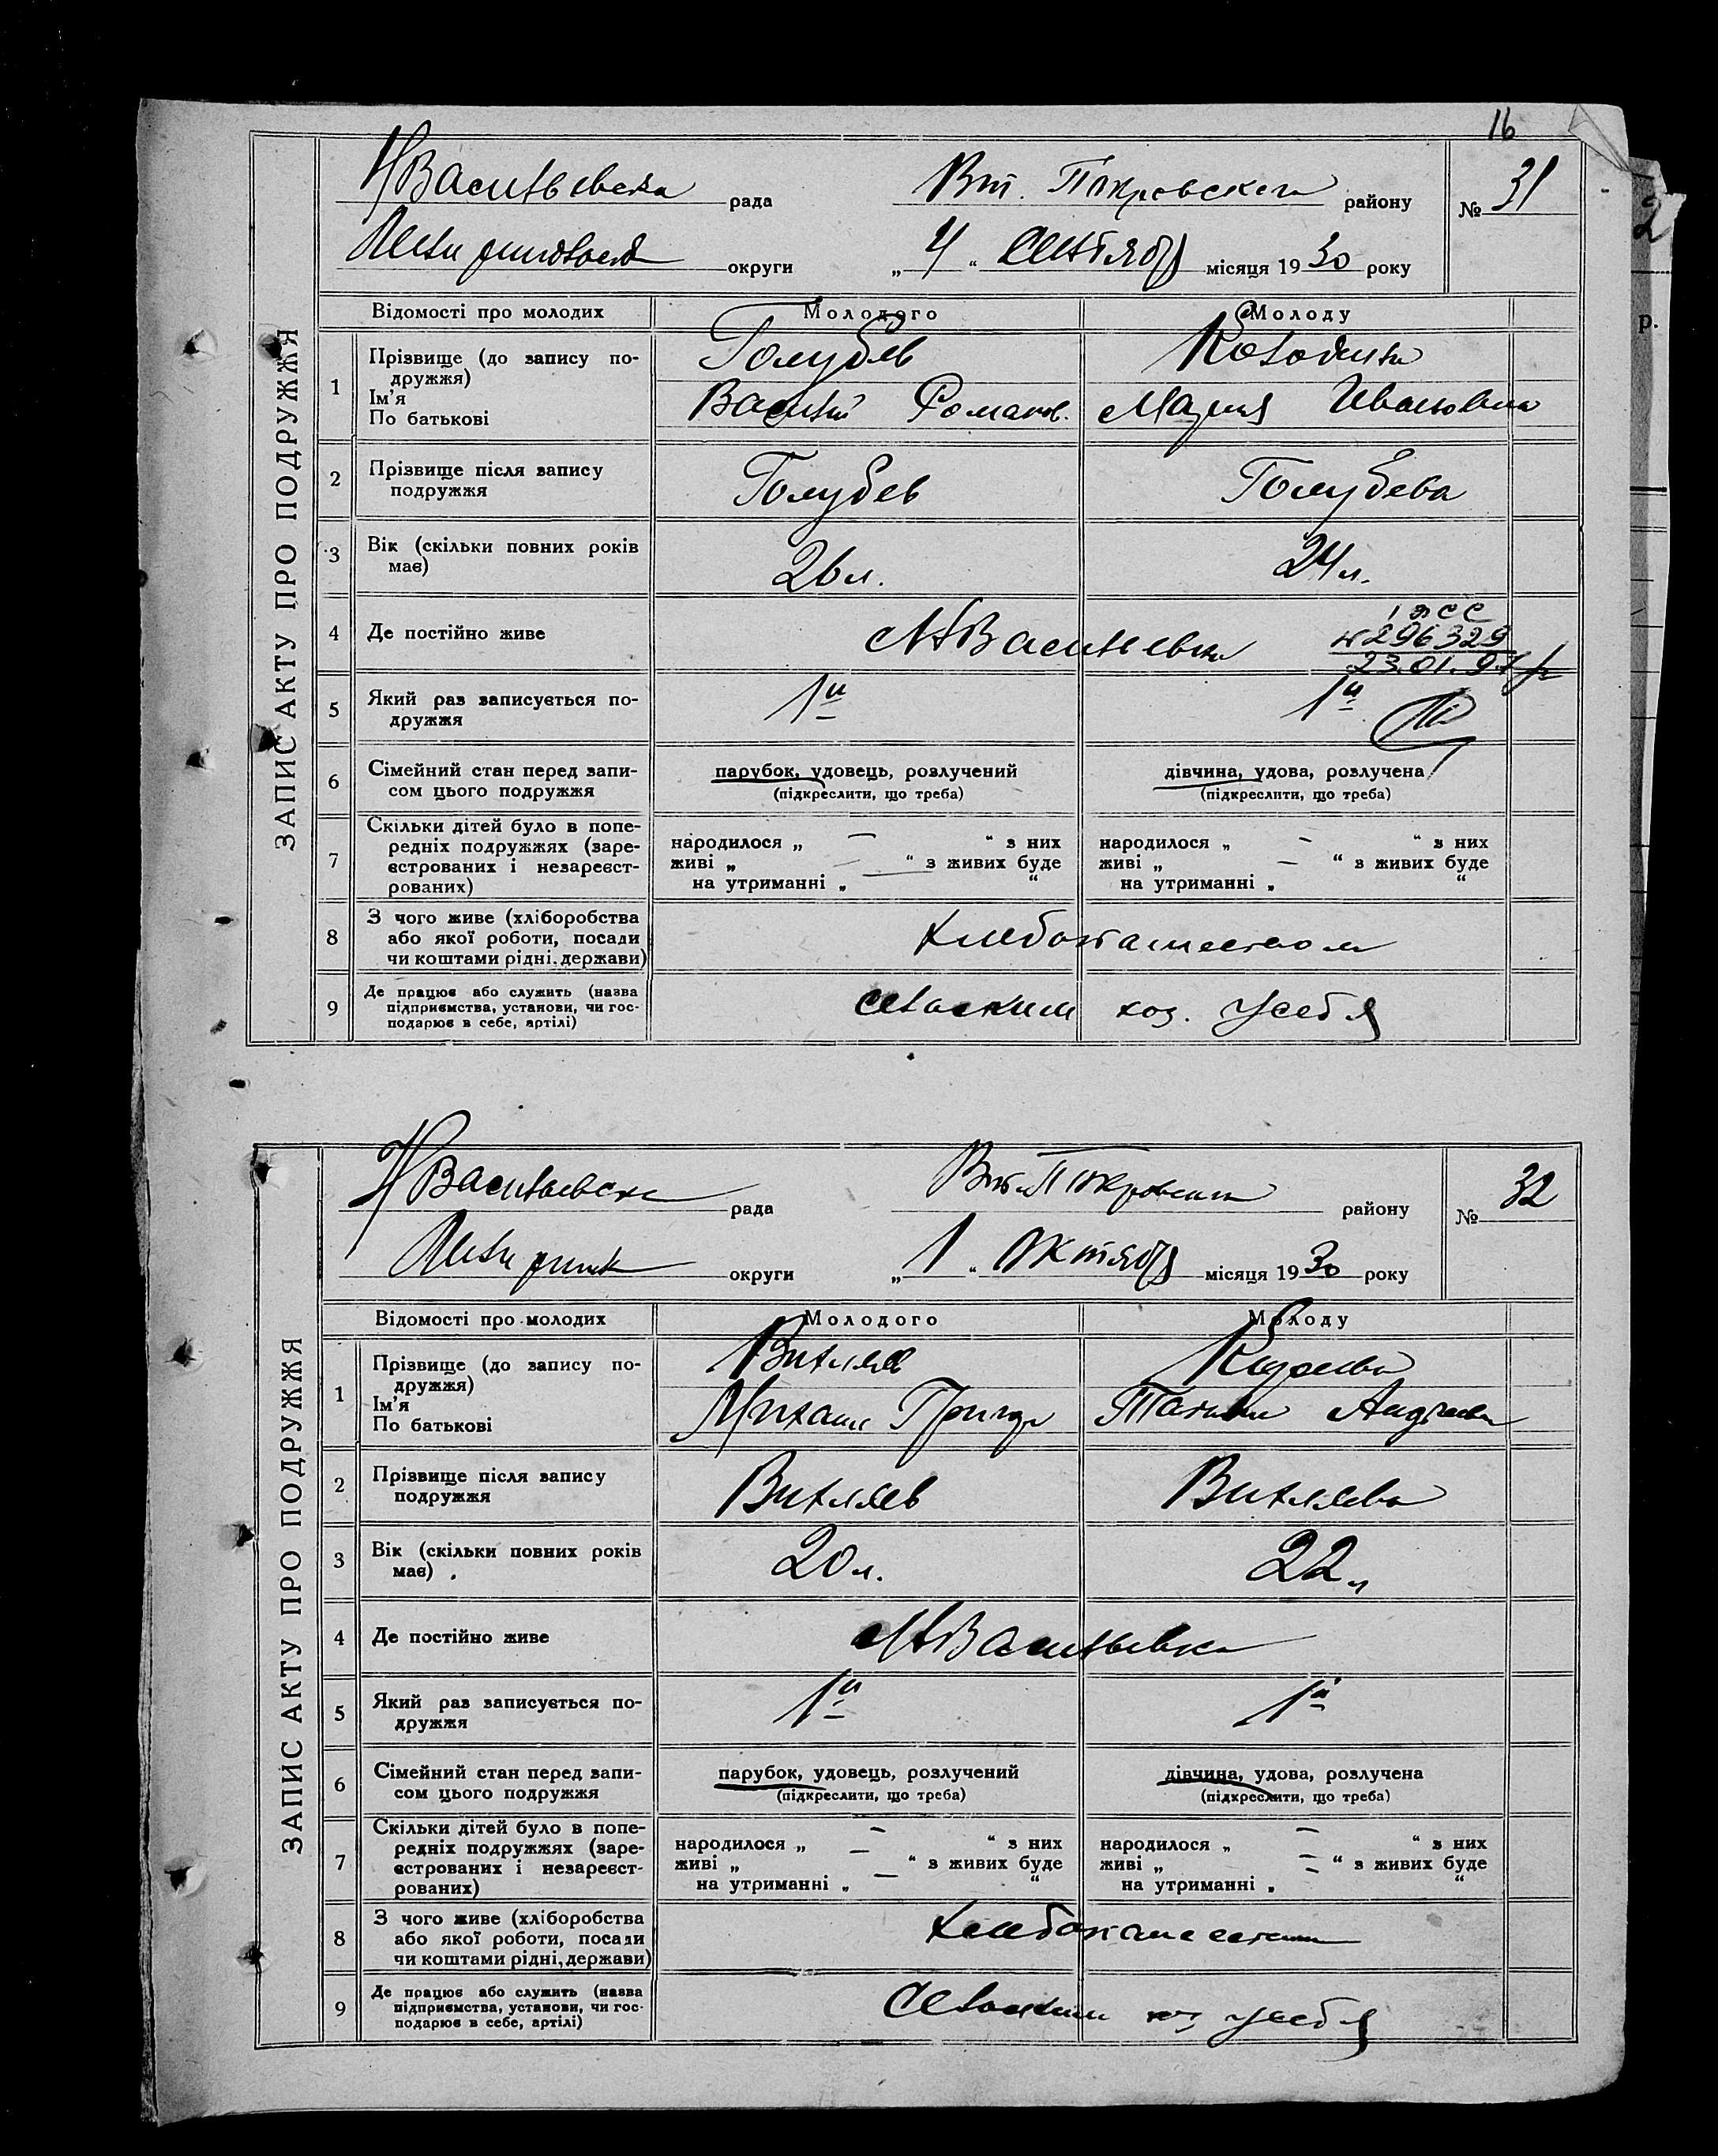 16
НВасильевска рада Вт. Покровского району № 31
округи „ 4 “ Сентября місяця 1930 року
ЗАПИС АКТУ ПРО ПОДРУЖЖЯ
Відомості про молодих Молодого Молоду
1 Прізвище (до запису по-
дружжя) Голубев
Ім'я
По батькові Василий Роман. Мария Ивановна
2 Прізвище після запису
подружжя Голубев Голубева
3 Вік (скільки повних років
має) 26 л. 24 л.
4 Де постійно живе НВасильевка
№ 296329
23.01.97
5 Який раз записується по-
дружжя 1й 1й
6 Сімейний стан перед запи-
сом цього подружжя парубок, удовець, розлучений дівчина, удова, розлучена
(підкреслити, що треба) (підкреслити, що треба)
7 Скільки дітей було в попе-
редніх подружжях (заре-
єстрованих і незареєст-
рованих)
народилося „ — “ з них народилося „ — “ з них
живі „ — “ з живих буде живі „ — “ з живих буде
на утриманні „ — “ на утриманні „ “
8 З чого живе (хліборобства
або якої роботи, посади
чи коштами рідні, держави) хлебопашеством
9 Де працює або служить (назва
підприємства, установи, чи гос-
подарює в себе, артілі) сельским хоз. у себя
НВасильевска рада Вт. Покровского району № 32
округи „ 1 “ Октября місяця 1930 року
ЗАПИС АКТУ ПРО ПОДРУЖЖЯ
Відомості про молодих Молодого Молоду
1 Прізвище (до запису по-
дружжя)
Ім'я
По батькові Михаил Григор Андреевна
2 Прізвище після запису
подружжя
3 Вік (скільки повних років
має) 20 л. 22 л
4 Де постійно живе НВасильевка
5 Який раз записується по-
дружжя 1й 1й
6 Сімейний стан перед запи-
сом цього подружжя парубок, удовець, розлучений дівчина, удова, розлучена
(підкреслити, що треба) (підкреслити, що треба)
7 Скільки дітей було в попе-
редніх подружжях (заре-
єстрованих і незареєст-
рованих)
народилося „ — “ з них народилося „ — “ з них
живі „ — “ з живих буде живі „ — “ з живих буде
на утриманні „ — “ на утриманні „ “
8 З чого живе (хліборобства
або якої роботи, посади
чи коштами рідні, держави) хлебопашеством
9 Де працює або служить (назва
підприємства, установи, чи гос-
подарює в себе, артілі) Сельским хоз у себя